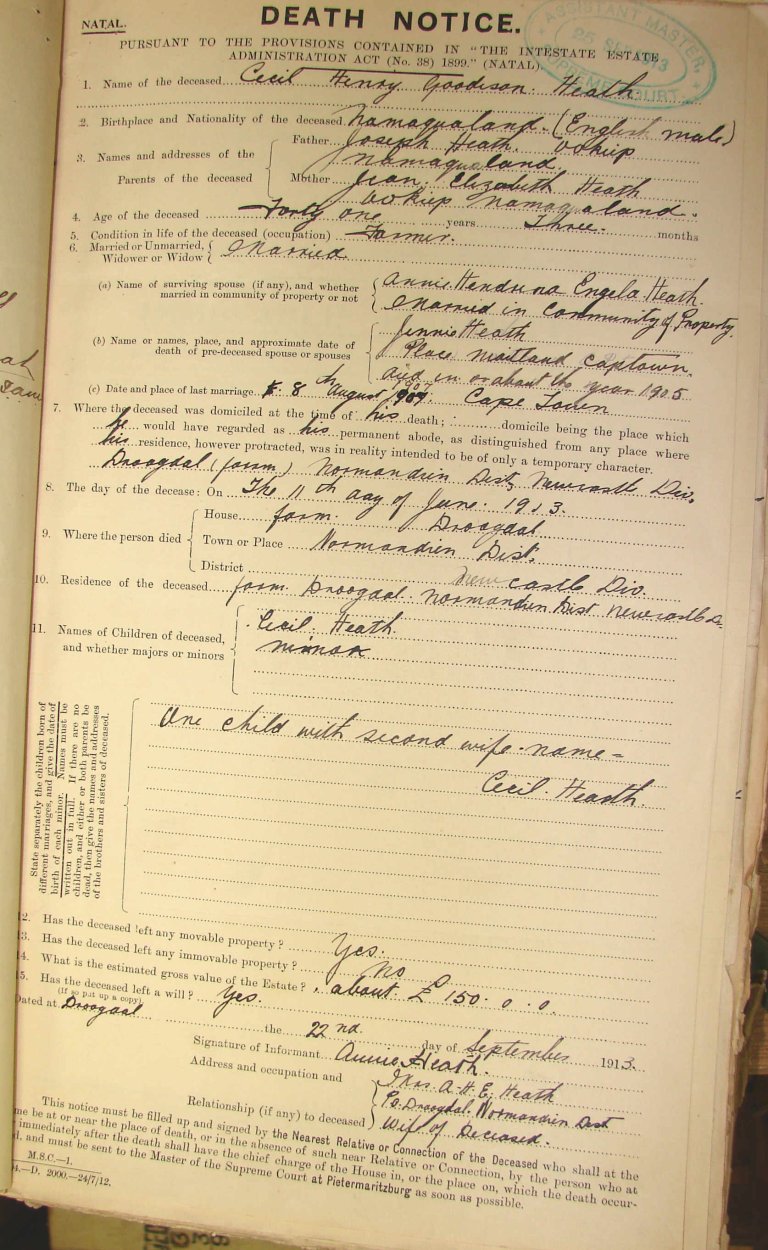 NATAL.
DEATH NOTICE.
ASSISTANT MASTER,
25
SUPREME COURT
PURSUANT TO THE PROVISIONS CONTAINED IN "THE INTESTATE ESTATE
ADMINISTRATION ACT (No. 38) 1899." (NATAL)
1. Name of the deceased Cecil Henry Goodison Heath
2. Birthplace and Nationality of the deceased Namaqualand. (English male)
3. Names and addresses of the Parents of the deceased
Father Joseph Heath. Ookiep
Namaqualand
Mother Jean Elizabeth Heath
Ookiep Namaqualand.
4. Age of the deceased Forty one years Three. months
5. Condition in life of the deceased (occupation) Farmer.
6. Married or Unmarried, Widower or Widow Married
(a) Name of surviving spouse (if any), and whether married in community of property or not
Annie Hendrina Engela Heath.
Married in Community of Property.
(b) Name or names, place, and approximate date of death of pre-deceased spouse or spouses
Jennie Heath
Place Maitland Captown.
died in or about the year 1905
(c) Date and place of last marriage. 8th August 1907. Cape Town
7. Where the deceased was domiciled at the time of his death; domicile being the place which
he would have regarded as his permanent abode, as distinguished from any place where
his residence, however protracted, was in reality intended to be of only a temporary character.
Droogdal (farm) Normandien Dist, Newcastle Div.
8. The day of the decease: On The 11th day of June 1913.
9. Where the person died
House farm. Droogdal
Town or Place Normandien Dist.
District Newcastle Div.
10. Residence of the deceased farm Droogdal Normandien Dist Newcastle
11. Names of Children of deceased, and whether majors or minors
Cecil Heath
minor
State separately the children born of
different marriages, and give the date of
birth of each minor. Names must be
written out in full. If there are no
children, and either or both parents be
dead, then give the names and addresses
of the brothers and sisters of deceased.
One child with second wife name =
Cecil Heath
2. Has the deceased left any movable property? Yes.
3. Has the deceased left any immovable property? no
4. What is the estimated gross value of the Estate? about £150.0.0.
5. Has the deceased left a will? Yes.
(If so put up a copy)
Dated at Droogdal the 22nd day of September 1913.
Signature of Informant Annie Heath.
Address and occupation and
Mrs. A. H. E. Heath
Droogdal Normandien Dist
Relationship (if any) to deceased Wife of Deceased.
This notice must be filled up and signed by the Nearest Relative or Connection of the Deceased who shall at the
me be at or near the place of death, or in the absence of such near Relative or Connection, by the person who at
immediately after the death shall have the chief charge of the House in, or the place on, which the death occur-
d. and must be sent to the Master of the Supreme Court at Pietermaritzburg as soon as possible.
M.S.C.—1.
4.—D. 2000.—24/7/12.